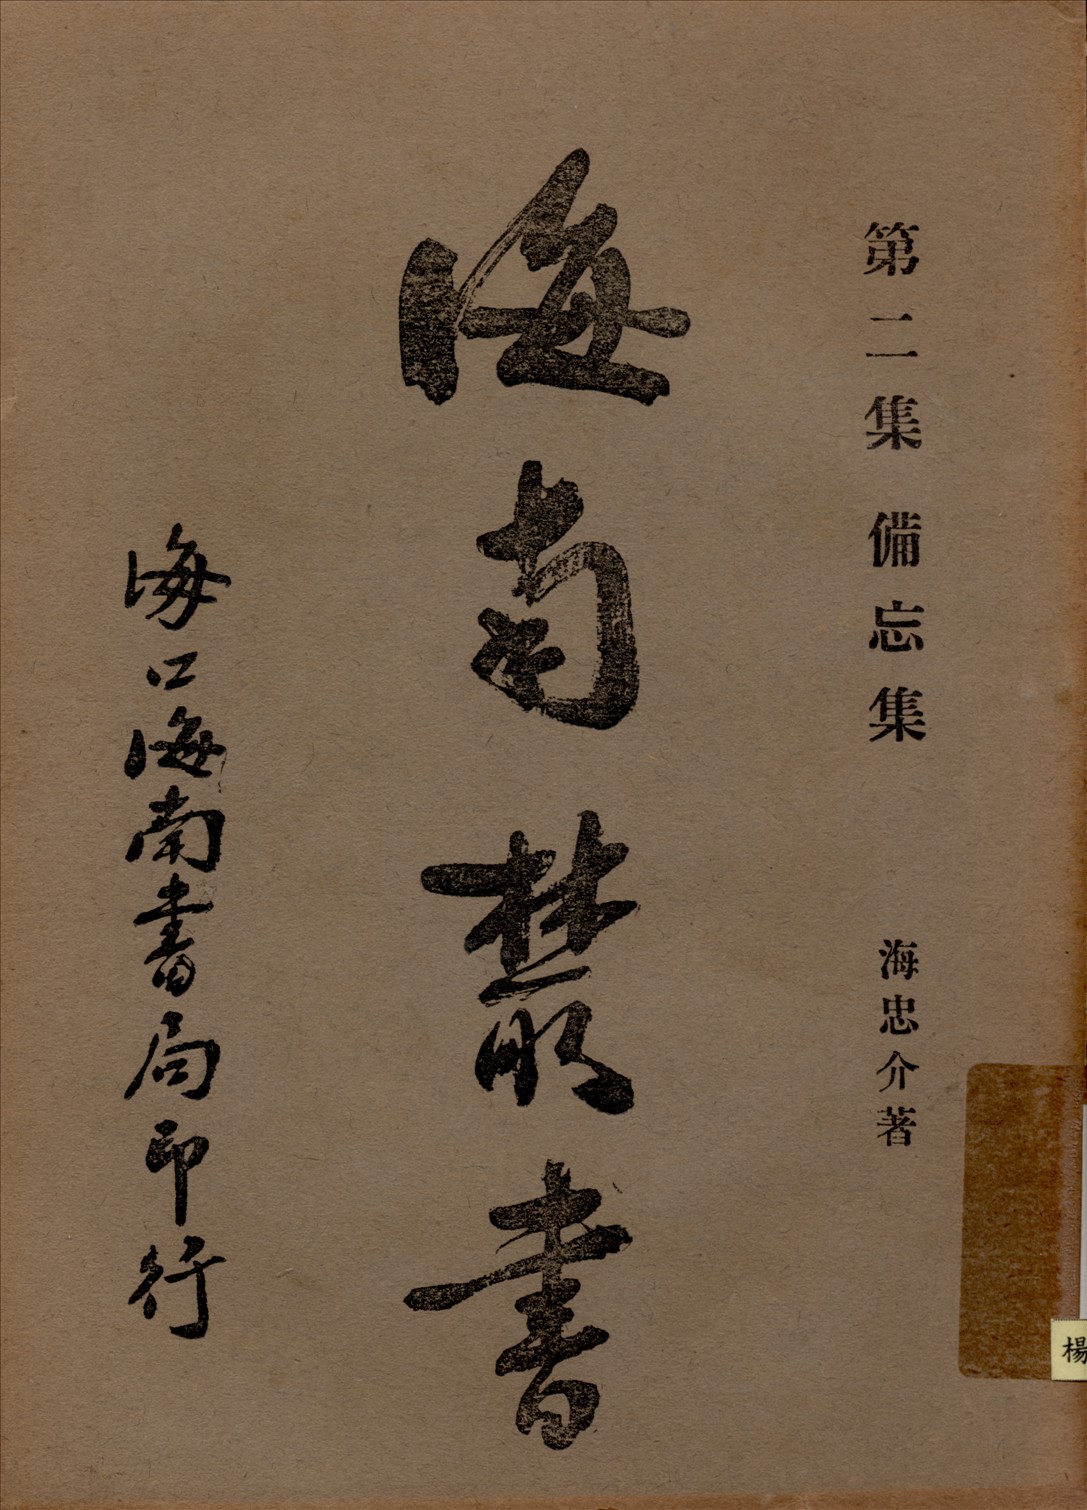 第二集 備忘集 海忠介著
海南叢書
海口海南書局印行
楊